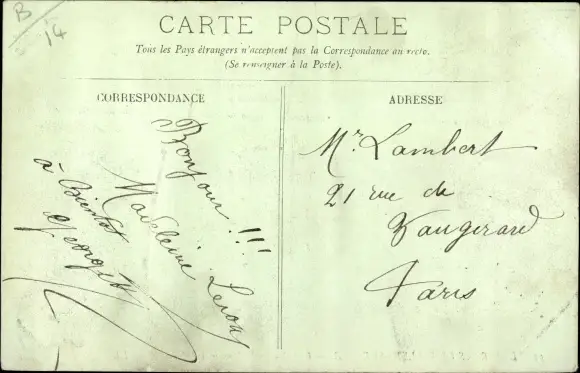 B
14
CARTE POSTALE
Tous les Pays étrangers n'acceptent pas la Correspondance au recto.
(Se renseigner à la Poste).
CORRESPONDANCE
Bonjour !!!
Madeleine Leroy
à Bientot
ADRESSE
Mr. Lambert
21 rue de
Vaugirard
Paris